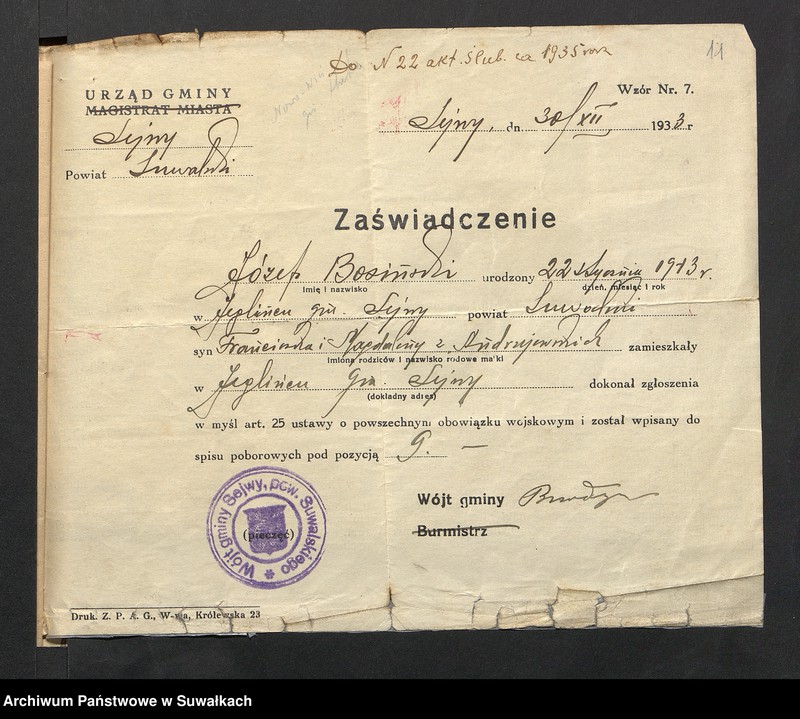 Do N 22 akt. Ślub. za 1935 rok
11
URZĄD GMINY
MAGISTRAT MIASTA
Wzór Nr. 7.
Sejny
Sejny, dn. 30/XII 1933 r
Powiat Suwalski
Zaświadczenie
Józef Bosiński urodzony 22 stycznia 1913 r.
Imię i nazwisko dzień, miesiąc i rok
w Jeglińcu gm. Sejny powiat Suwalski
syn Franciszka i Magdaleny z Andrzejewskich zamieszkały
Imiona rodziców i nazwisko rodowe matki
w Jeglińcu gm. Sejny dokonał zgłoszenia
(dokładny adres)
w myśl art. 25 ustawy o powszechnym obowiązku wojskowym i został wpisany do
spisu poborowych pod pozycją 9. —
Wójt gminy
Burmistrz
Wójt gminy Sejwy, pow. Suwalskiego
(pieczęć)
Druk. Z. P. A. G., W-wa, Królewska 23
Archiwum Państwowe w Suwałkach